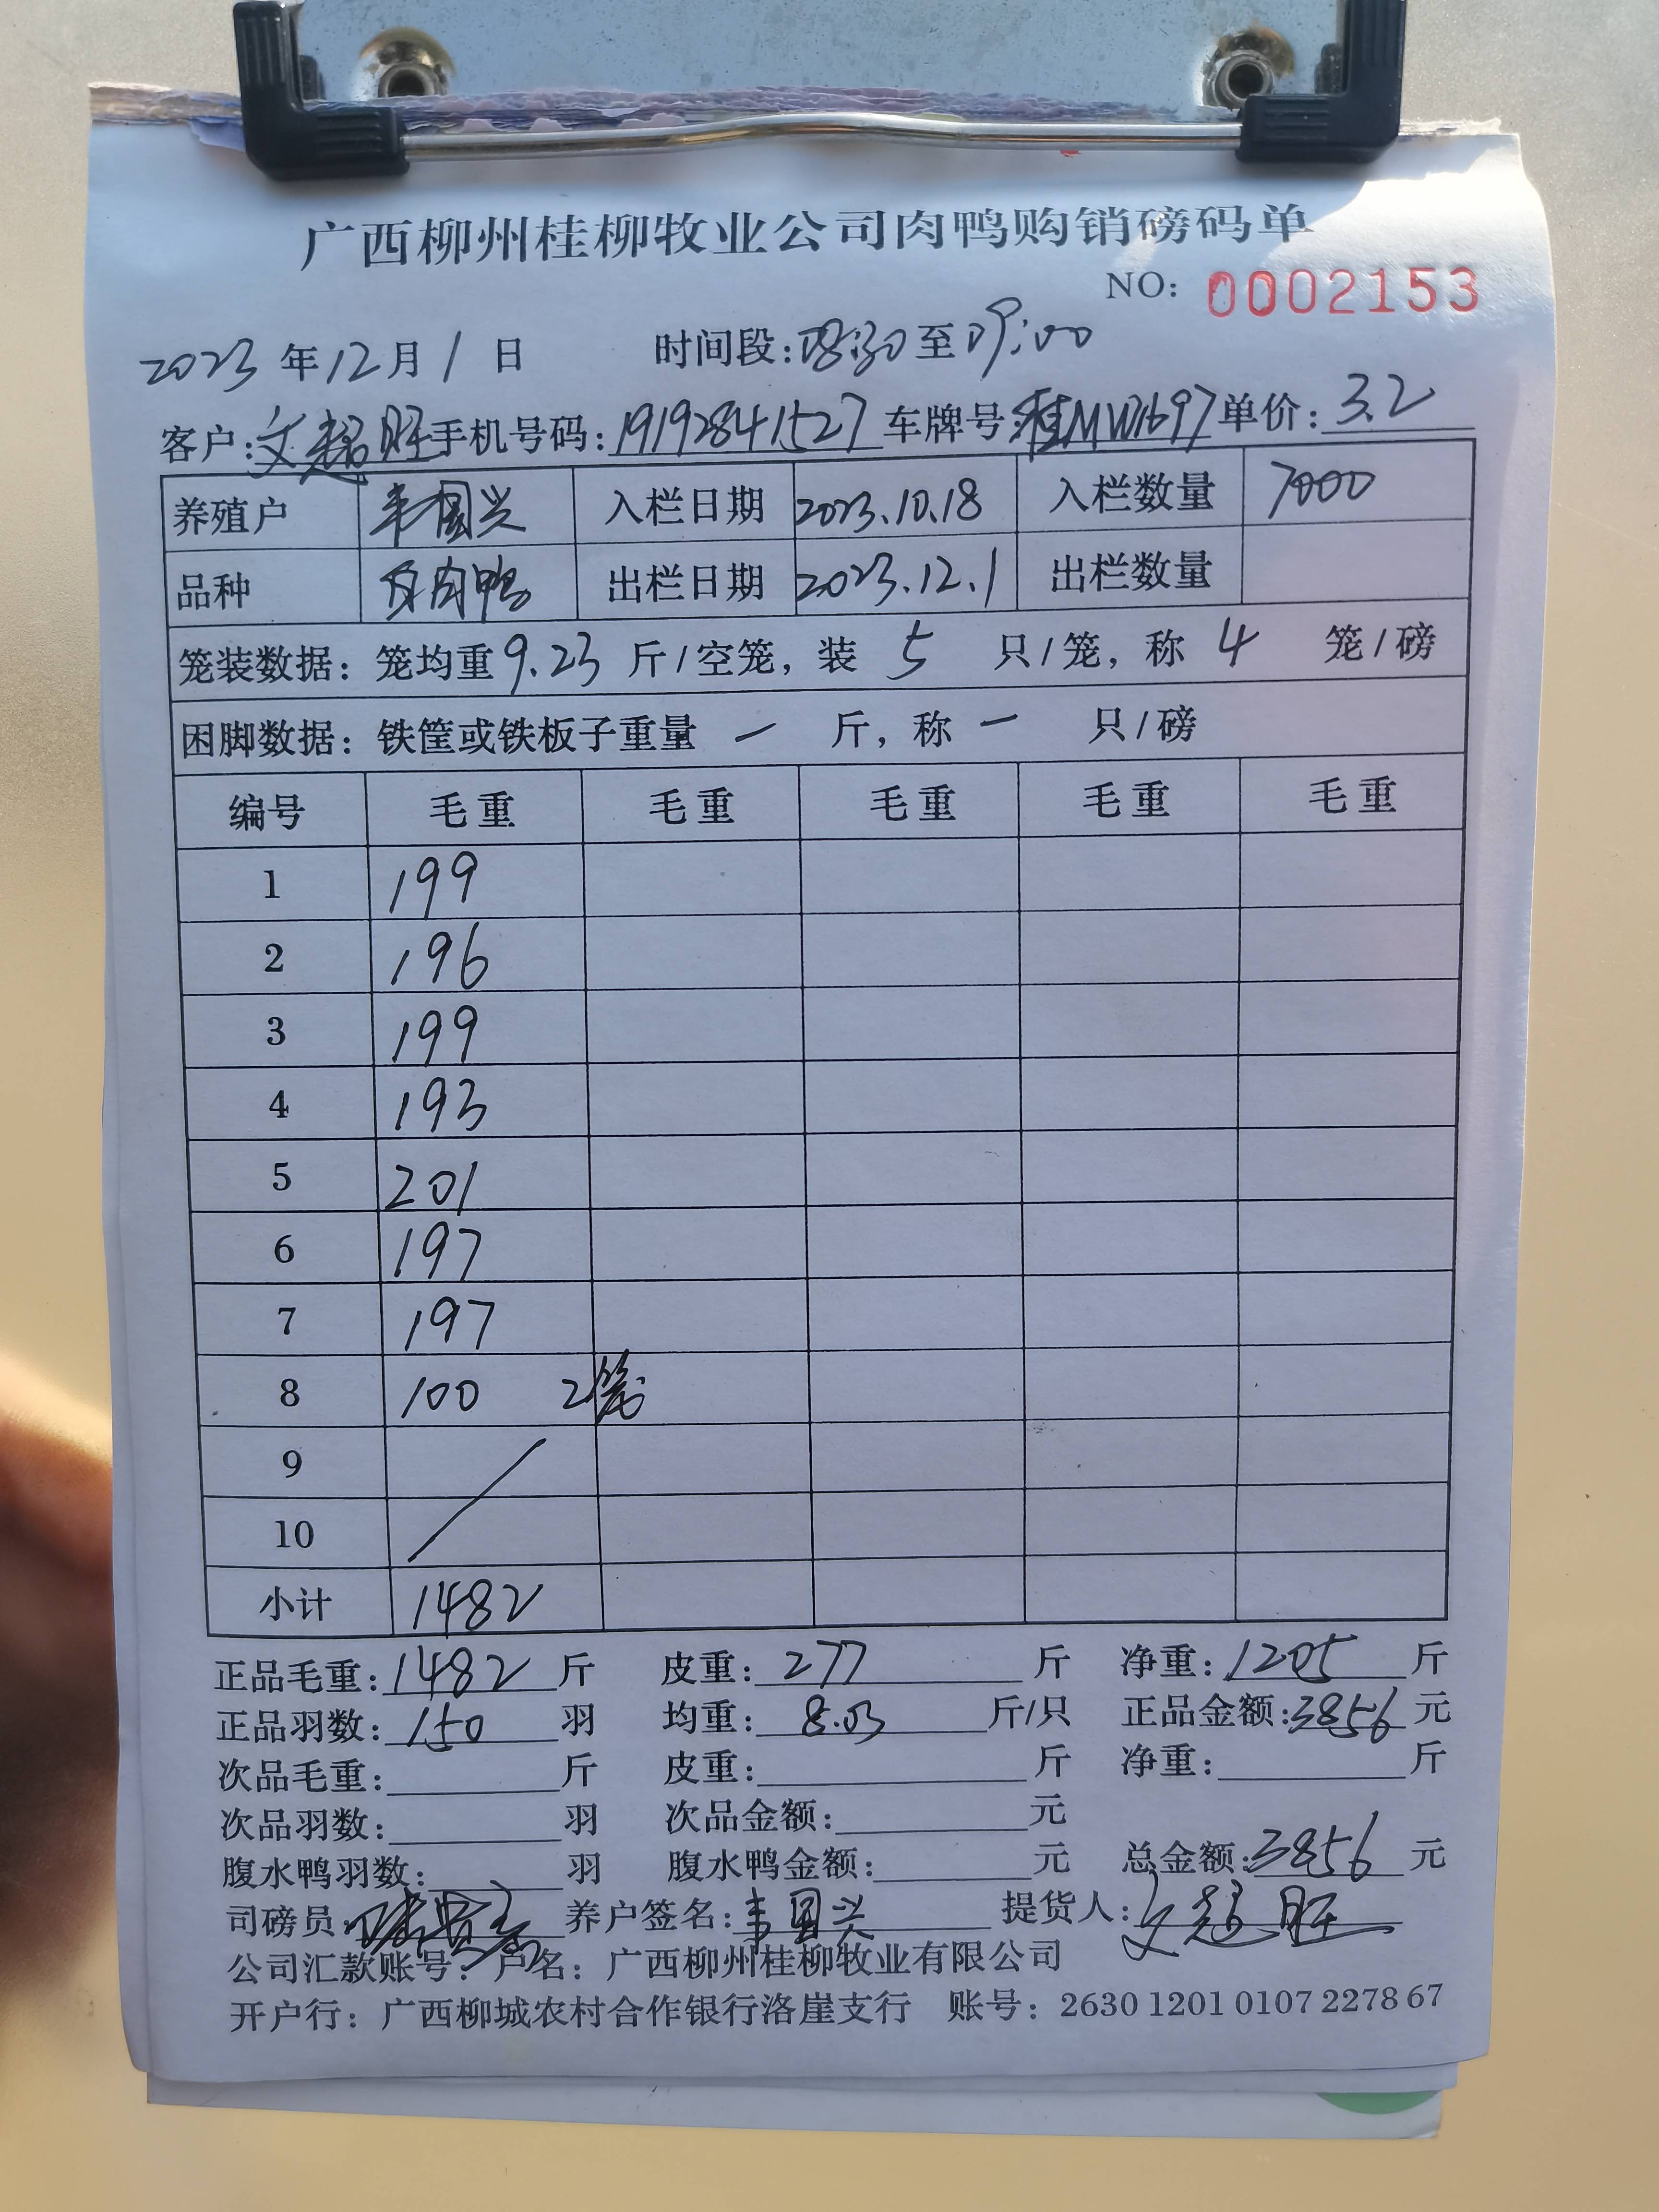 广西柳州桂柳牧业公司肉鸭购销磅码单
NO: 0002153
2023 年 12 月 1 日 时间段: 08:30 至 09:00
客户: 文超旺 手机号码: 19192841527 车牌号: 单价: 3.2
养殖户 韦国兴 入栏日期 2023.10.18 入栏数量 7000
品种 肉鸭 出栏日期 2023.12.1 出栏数量
笼装数据: 笼均重 9.23 斤/空笼, 装 5 只/笼, 称 4 笼/磅
困脚数据: 铁筐或铁板子重量 一 斤, 称 一 只/磅
编号 毛重 毛重 毛重 毛重 毛重
1 199
2 196
3 199
4 193
5 201
6 197
7 197
8 100 2笼
9
10
小计 1482
正品毛重: 1482 斤 皮重: 277 斤 净重: 1205 斤
正品羽数: 150 羽 均重: 8.03 斤/只 正品金额: 3856 元
次品毛重: 斤 皮重: 斤 净重: 斤
次品羽数: 羽 次品金额: 元
腹水鸭羽数: 羽 腹水鸭金额: 元 总金额: 3856 元
司磅员: 养户签名: 韦国兴 提货人: 文超旺
公司汇款账号: 户名: 广西柳州桂柳牧业有限公司
开户行: 广西柳城农村合作银行洛崖支行 账号: 2630 1201 0107 2278 67